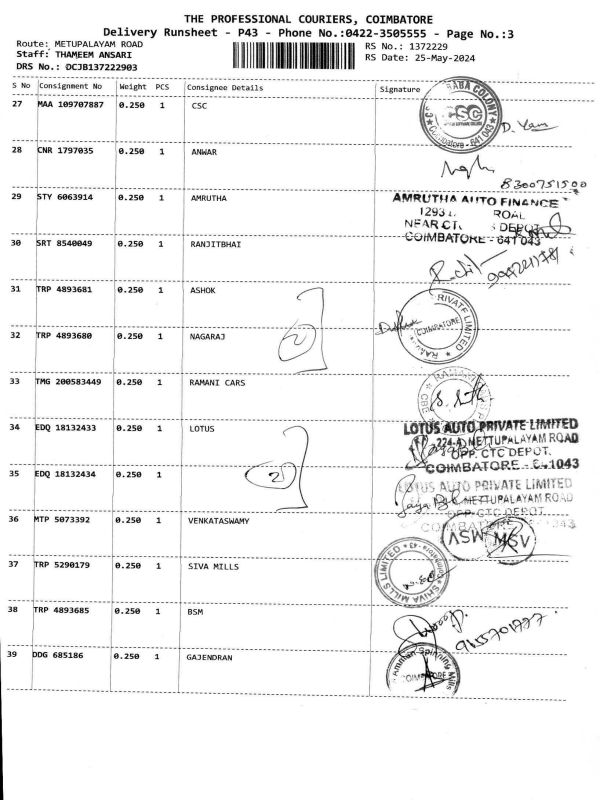 THE PROFESSIONAL COURIERS, COIMBATORE
Delivery Runsheet - P43 - Phone No.:0422-3505555 - Page No.:3
Route: METUPALAYAM ROAD RS No.: 1372229
Staff: THAMEEM ANSARI RS Date: 25-May-2024
DRS No.: DCJB137222903
S No Consignment No Weight PCS Consignee Details Signature
27 MAA 109707887 0.250 1 CSC
BABA COLONY
CSC
Coimbatore - 641 043
28 CNR 1797035 0.250 1 ANWAR
8300751500
29 STY 6063914 0.250 1 AMRUTHA
AMRUTHA AUTO FINANCE
1293
NEAR DEPOT
COIMBATORE - 641 043
30 SRT 8540049 0.250 1 RANJITBHAI
31 TRP 4893681 0.250 1 ASHOK
PRIVATE LIMITED
COIMBATORE
32 TRP 4893680 0.250 1 NAGARAJ
2
33 TMG 200583449 0.250 1 RAMANI CARS
34 EDQ 18132433 0.250 1 LOTUS
LOTUS AUTO PRIVATE LIMITED
224-A, METTUPALAYAM ROAD
OPP. CTC DEPOT.
COIMBATORE - 641043
35 EDQ 18132434 0.250 1
2
LOTUS AUTO PRIVATE LIMITED
METTUPALAYAM ROAD
OPP. CTC DEPOT
36 MTP 5073392 0.250 1 VENKATASWAMY
MSV MSV
37 TRP 5290179 0.250 1 SIVA MILLS
SHIVA MILLS LIMITED
Coimbatore - 43
38 TRP 4893685 0.250 1 BSM
39 DDG 685186 0.250 1 GAJENDRAN
Spinning Mills
COIMBATORE